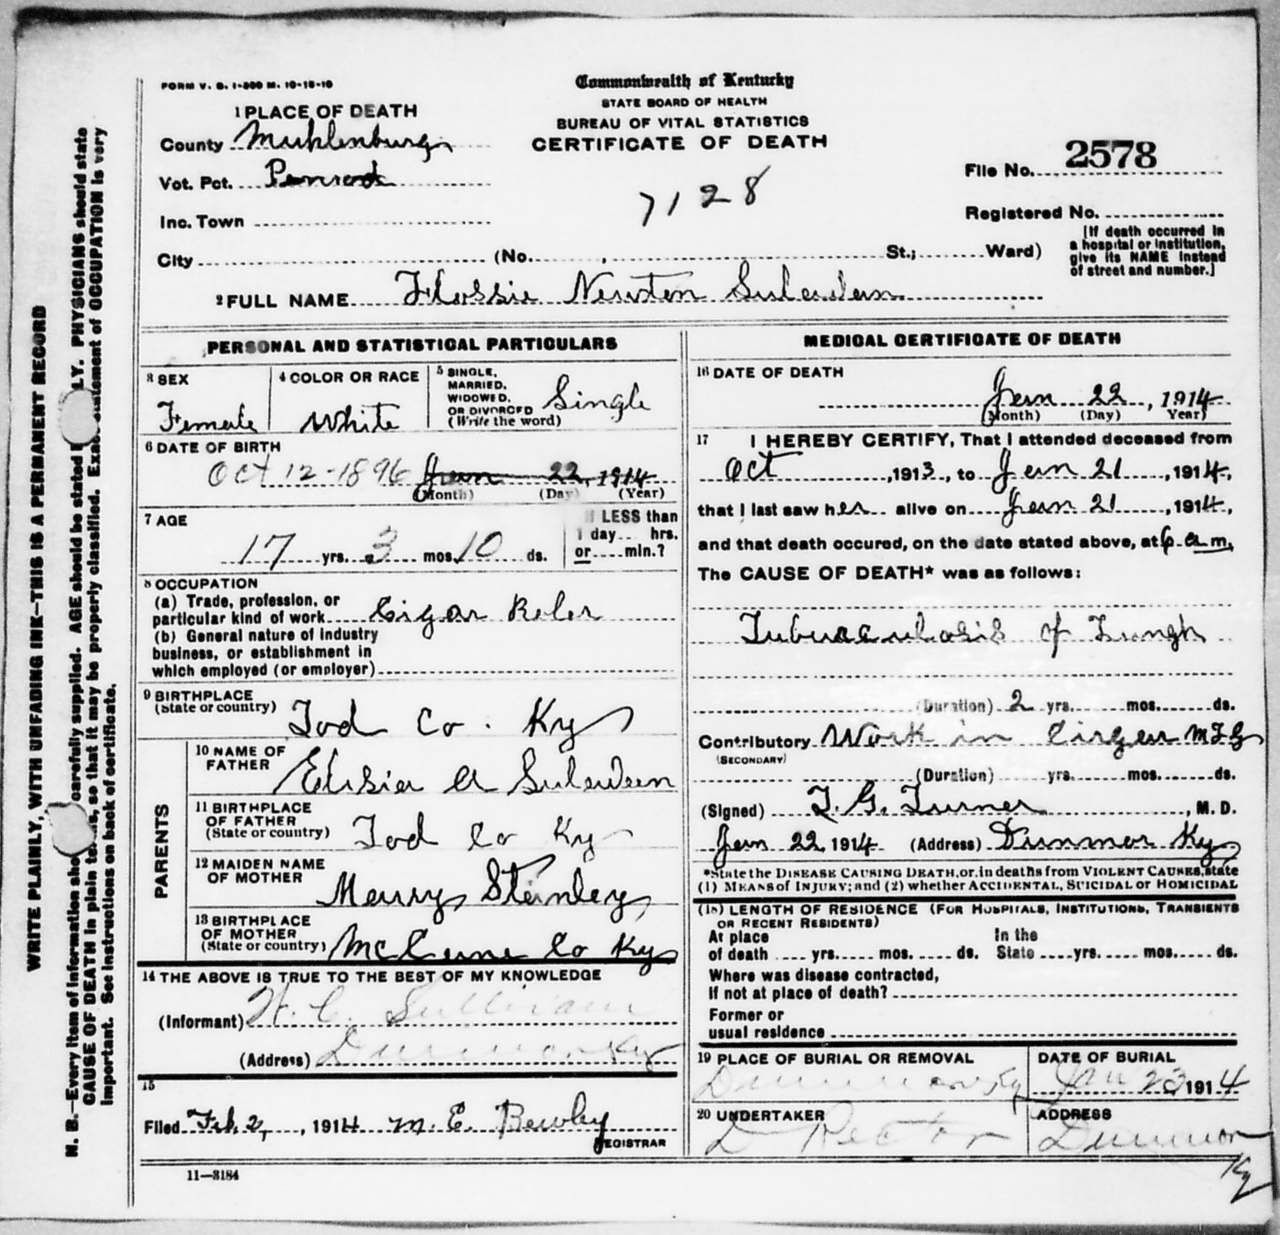 FORM V. S. 1-300 M. 10-18-10
Commonwealth of Kentucky
STATE BOARD OF HEALTH
BUREAU OF VITAL STATISTICS
CERTIFICATE OF DEATH
1 PLACE OF DEATH
County Muhlenburg
Vot. Pct. Penrod
Inc. Town
City (No. , St.; Ward)
7128
File No. 2578
Registered No.
[If death occurred in
a hospital or institution,
give its NAME instead
of street and number.]
2 FULL NAME Flossie Newton
PERSONAL AND STATISTICAL PARTICULARS
3 SEX
Female
4 COLOR OR RACE
White
5 SINGLE,
MARRIED,
WIDOWED,
OR DIVORCED
(Write the word)
Single
6 DATE OF BIRTH
Oct 12-1896 Jan 22, 1914
(Month) (Day) (Year)
7 AGE
17 yrs. 3 mos. 10 ds.
If LESS than
1 day... hrs.
or.....min.?
8 OCCUPATION
(a) Trade, profession, or
particular kind of work Cigar Roler
(b) General nature of Industry
business, or establishment in
which employed (or employer)
9 BIRTHPLACE
(State or country) Tod Co. Ky
PARENTS
10 NAME OF
FATHER
11 BIRTHPLACE
OF FATHER
(State or country) Tod Co Ky
12 MAIDEN NAME
OF MOTHER Stanley
13 BIRTHPLACE
OF MOTHER
(State or country) Co Ky
14 THE ABOVE IS TRUE TO THE BEST OF MY KNOWLEDGE
(Informant) H. C. Sullivan
(Address) Dunmor Ky
15
Filed Feb. 2, , 1914 M. E. Bewley
REGISTRAR
11—3184
MEDICAL CERTIFICATE OF DEATH
16 DATE OF DEATH
Jan 22, 1914
(Month) (Day) (Year)
17 I HEREBY CERTIFY, That I attended deceased from
Oct , 1913, to Jan 21, 1914,
that I last saw her alive on Jan 21, 1914,
and that death occured, on the date stated above, at 6 a.m.
The CAUSE OF DEATH* was as follows:
Tuburculosis of Lungs
(Duration) 2 yrs. mos. ds.
Contributory Work in Cigar MFG
(SECONDARY)
(Duration) yrs. mos. ds.
(Signed) T. G. Turner , M. D.
Jan 22, 1914 (Address) Dunmor Ky
*State the DISEASE CAUSING DEATH, or, in deaths from VIOLENT CAUSES, state
(1) MEANS of INJURY; and (2) whether ACCIDENTAL, SUICIDAL or HOMICIDAL
(18) LENGTH OF RESIDENCE (FOR HOSPITALS, INSTITUTIONS, TRANSIENTS
OR RECENT RESIDENTS)
At place In the
of death .... yrs. .... mos. .... ds. State .... yrs. .... mos. .... ds.
Where was disease contracted,
If not at place of death?
Former or
usual residence
19 PLACE OF BURIAL OR REMOVAL
Dunmor Ky
DATE OF BURIAL
Jan 23 1914
20 UNDERTAKER
D Rector
ADDRESS
Dunmor
Ky
WRITE PLAINLY, WITH UNFADING INK—THIS IS A PERMANENT RECORD
N. B.—Every item of information carefully supplied. AGE should be stated PHYSICIANS should state
CAUSE OF DEATH in plain so that it may be properly classified. statement of OCCUPATION is very
important. See instructions on back of certificate.